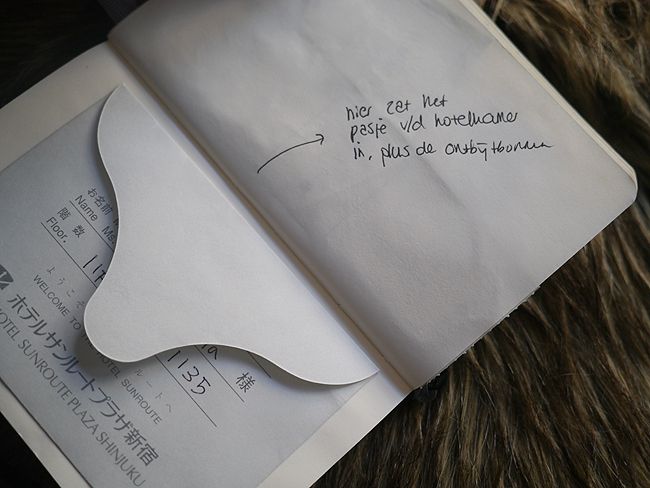 hier zat het
pasje v/d hotelkamer
in, plus de ontbijtbonnen
お名前
Name
階数
Floor. 11
ようこそ
ルートへ
WELCOME TO
SUNROUTE
様
1135
ホテルサンルートプラザ新宿
HOTEL SUNROUTE PLAZA SHINJUKU